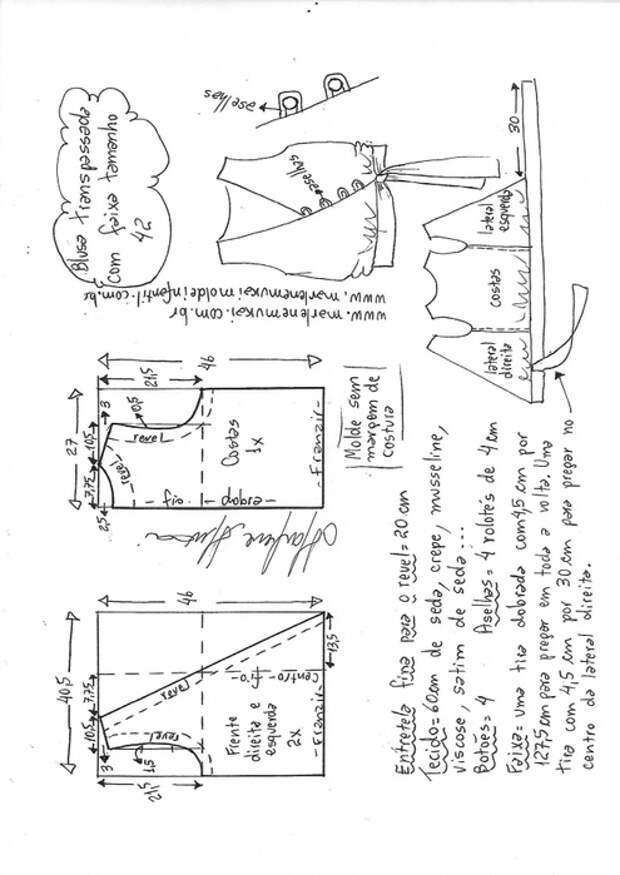 Blusa transpassada
com faixa tamanho
42
aselhas
aselhas
www.marlenemukai.com.br
www.marlenemukaimoldeinfantil.com.br
30
lateral
direita
costas
lateral
esquerda
40,5
10,5
7,75
3
46
21,5
1,5
revel
revel
Frente
direita e
esquerda
2x
centro-fio
-Franzir-
13,5
27
7,75
10,5
2,5
3
21,5
46
0,5
revel
revel
Costas
1x
fio
dobra
-Franzir-
Molde sem
margem de
costura
Entretela fina para o revel=20cm
Tecido=60cm de seda, crepe, musseline,
viscose, satim de seda...
Botões=4 Aselhas=4 rolotês de 4cm
Faixa=uma tira dobrada com 4,5cm por
127,5cm para pregar em toda a volta. Uma
tira com 4,5cm por 30cm para pregar no
centro da lateral direita.